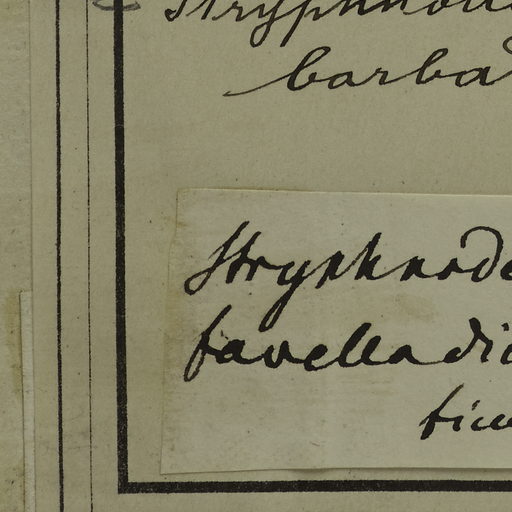 Stryphnod
barba
Stryphnode
favelladi